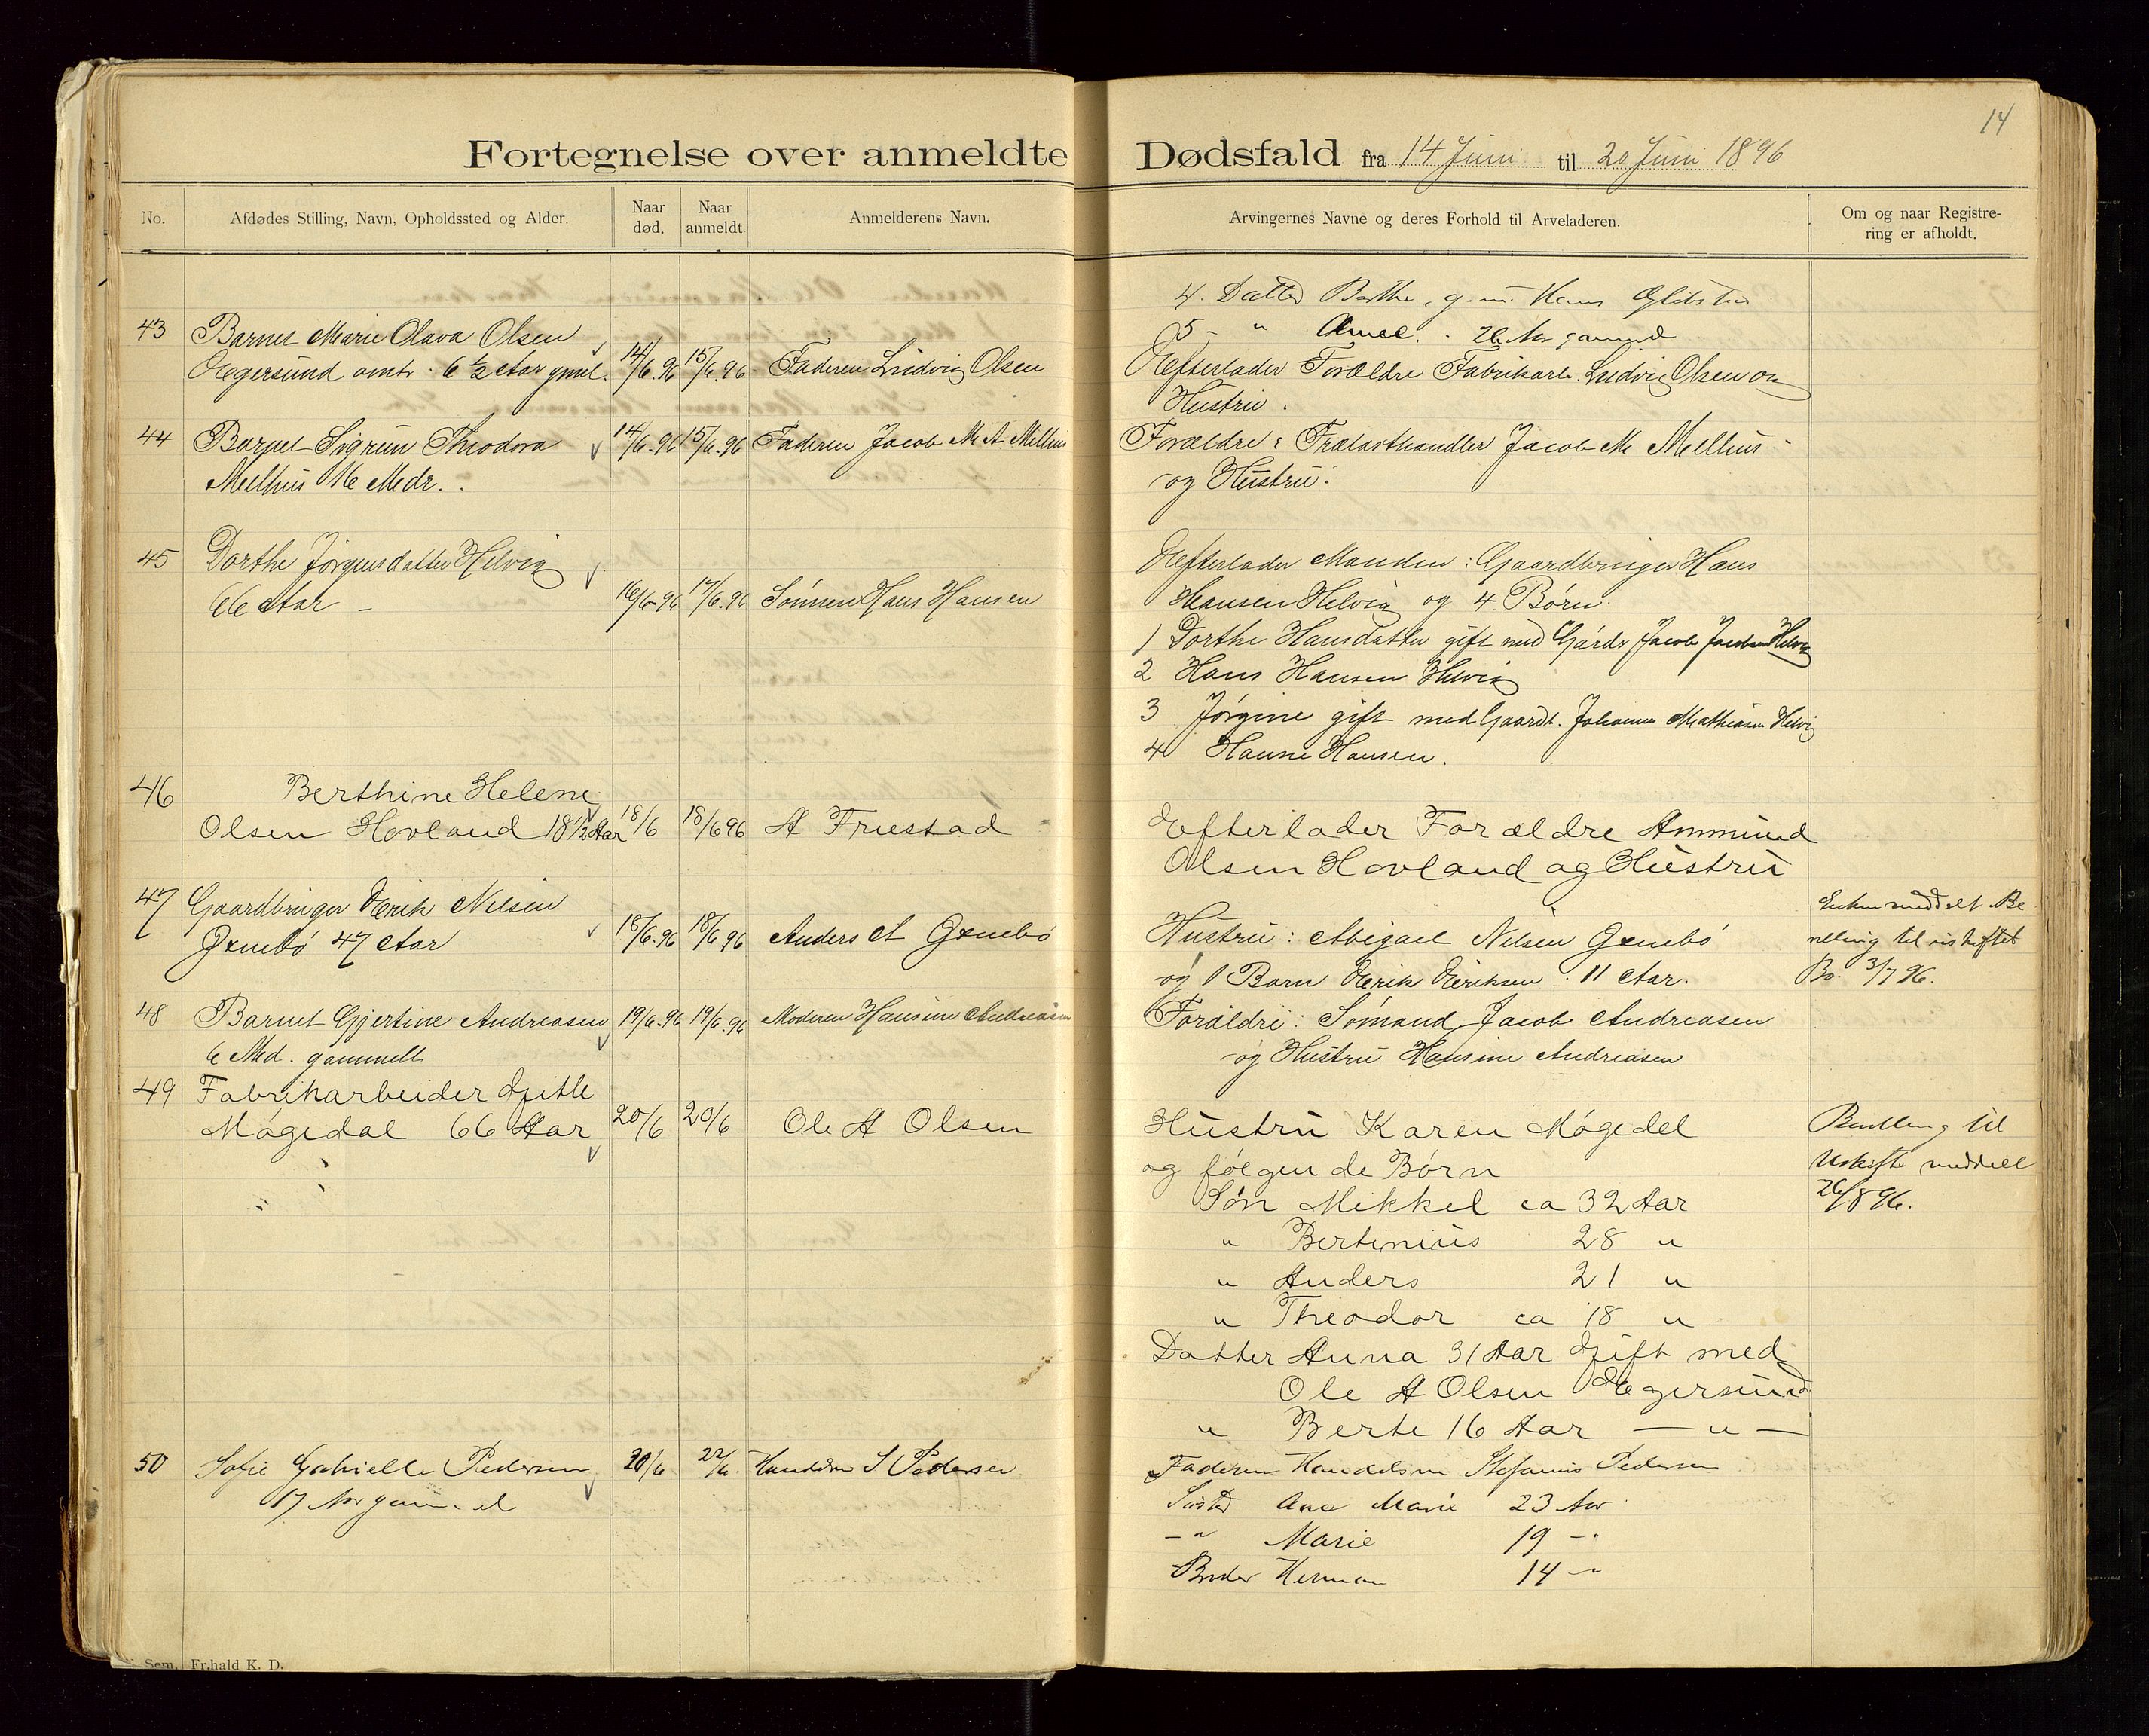 14
Fortegnelse over anmeldte Dødsfald fra 14 Juni til 20 Juni 1896
No.
Afdødes Stilling, Navn, Opholdssted og Alder.
Naar død.
Naar anmeldt
Anmelderens Navn.
Arvingernes Navne og deres Forhold til Arveladeren.
Om og naar Registrering er afholdt.
4. Datter Berthe, g. m. Hans
5 - " 26 Aar gammel
43 Barnet Marie Olava Olsen
Egersund omtr. 6 1/2 Aar gml. 14/6.96 15/6.96 Faderen Ludvig Olsen
Efterlader Forældre Fabrikarb. Ludvig Olsen og
Hustru.
44 Barnet Sigrun Theodora 14/6.96 15/6.96 Faderen Jacob M. A. Melhus
Melhus 16 Mdr.
Forældre: Trælasthandler Jacob M Melhus
og Hustru.
45 Dorthe Jørgensdatter Helvig
66 Aar - 16/6.96 17/6.96 Sønnen Hans Hansen
Efterlader Manden: Gaardbruger Hans
Hansen Helvig og 4 Børn.
1 Dorthe Hansdatter gift med Gårdb Jacob Jacobsen Helvig
2 Hans Hansen Helvig
3 Jørgine gift med Gaardb. Johannes Mathiasen Helvig
4 Hanne Hansen.
46 Berthine Helene
Olsen Hovland 18 1/2 Aar 18/6 18/6 96 A Fruestad
Efterlader Forældre Ammund
Olsen Hovland og Hustru
47 Gaardbruger Erik Nilsen
Gxnebø 47 Aar 18/6.96 18/6.96 Anders A Gxnebø
Hustru: Abigael Nilsen Gxnebø
og 1 Barn Erik Eriksen 11 Aar.
Enken meddelt Be
villing til uskiftet
Bo. 3/7 96.
48 Barnet Gjertine Andreasen 19/6.96 19/6.96 Moderen Hansine Andreasen
6 Md. gammelt
Forældre: Sømand Jacob Andreasen
og Hustru Hansine Andreasen
49 Fabrikarbeider Gjitle
Møgedal 66 Aar 20/6 20/6 Ole A Olsen
Hustru Karen Møgedel
og følgende Børn
Søn Mikkel ca 32 Aar
" Bertinius 28 "
" Anders 21 "
" Theodor ca 18 "
Datter Anna 31 Aar Gift med
Ole A Olsen Egersund
" Berte 16 Aar — " —
Bevilling til
Uskifte meddelt
26/8 96.
50 Sofie Gabrielle Pedersen 20/6 22/6 Handelsm S Pedersen
17 Aar gammel
Faderen Handelsm Stefanus Pedersen
Søster Ane Marie 23 Aar
- " Marie 19 - "
Broder Herman 14 - "
Sem, Fr.hald K. D.